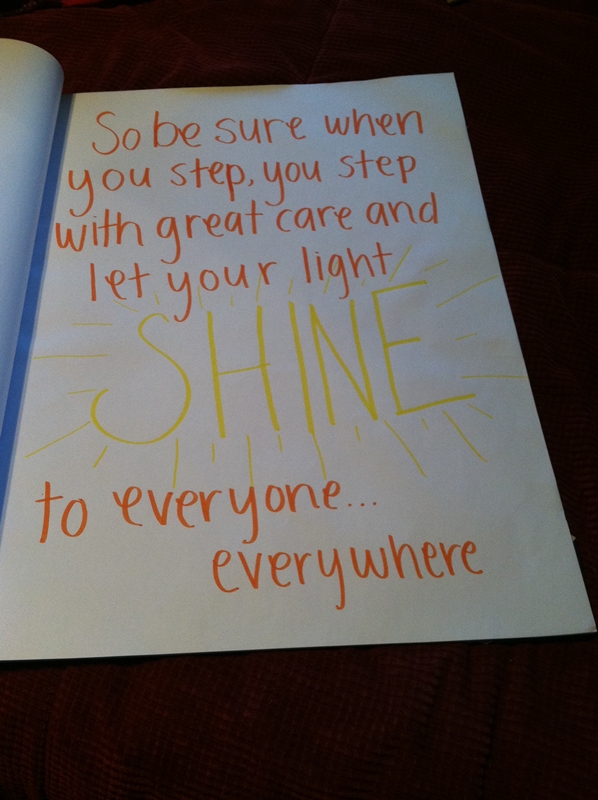 So be sure when
you step, you step
with great care and
let your light
SHINE
to everyone...
everywhere